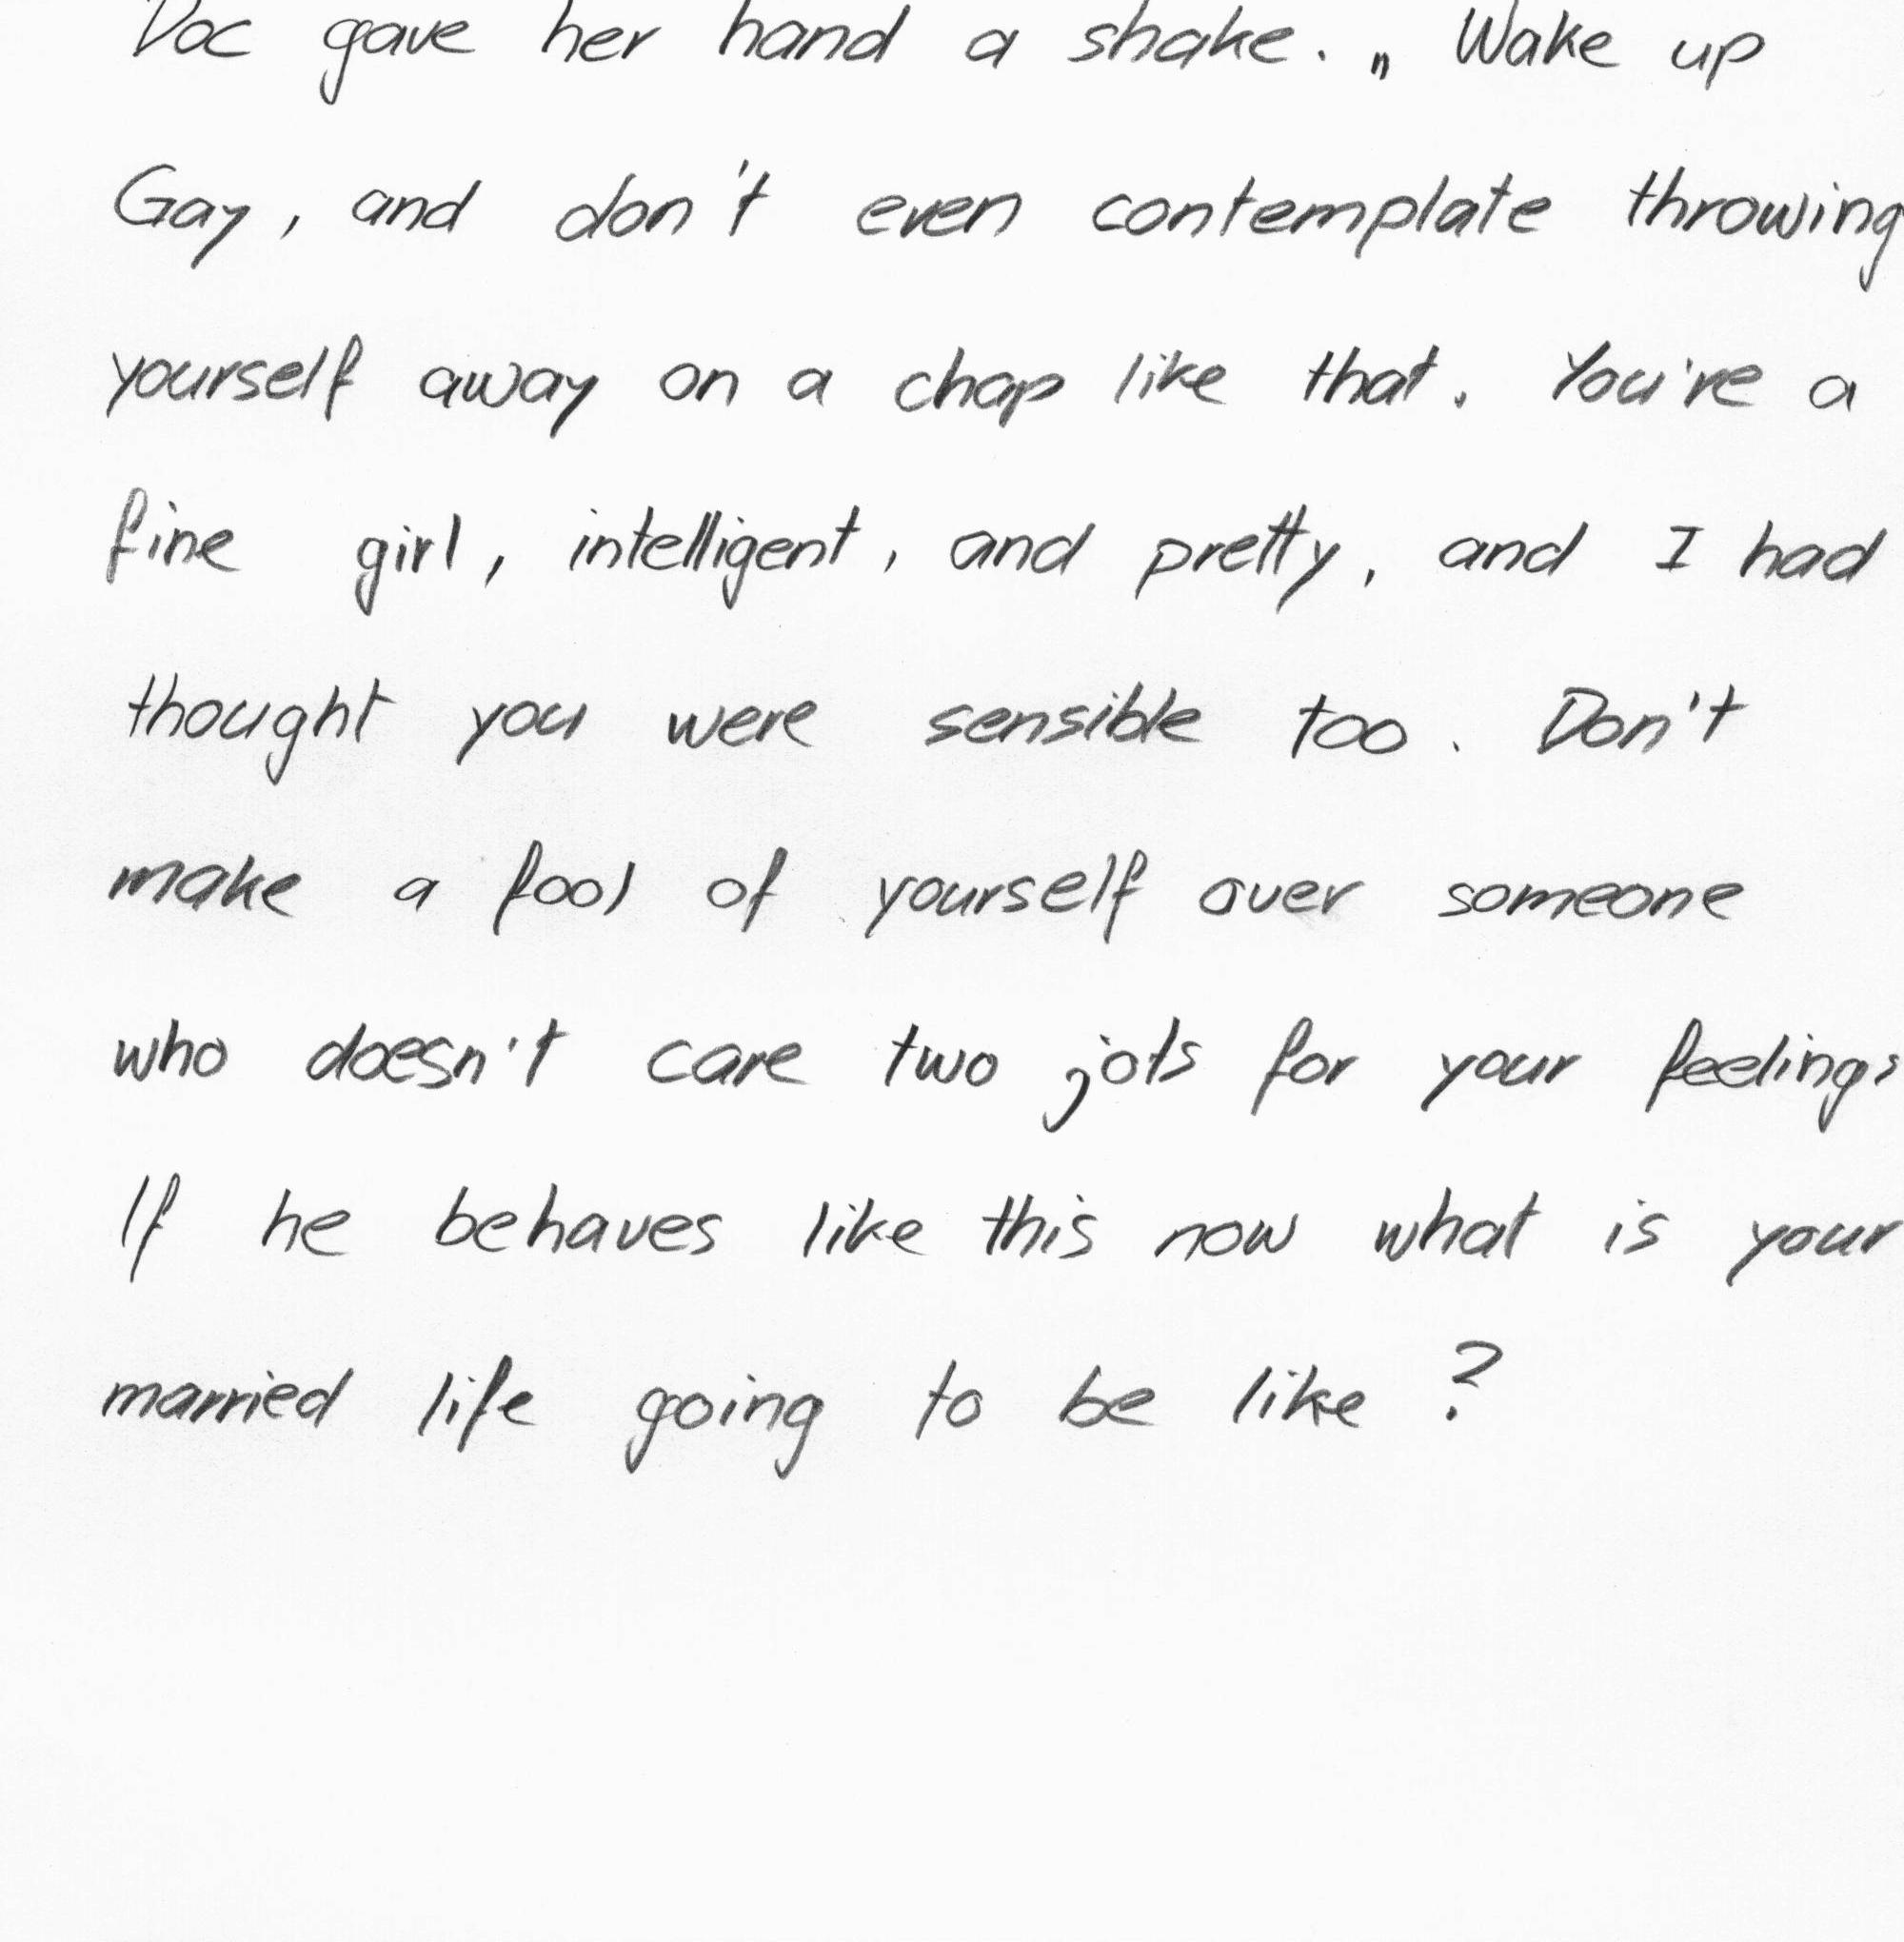 Doc gave her hand a shake. „Wake up
Gay, and don't even contemplate throwing
yourself away on a chap like that. You're a
fine girl, intelligent, and pretty, and I had
thought you were sensible too. Don't
make a fool of yourself over someone
who doesn't care two jots for your feelings
If he behaves like this now what is your
married life going to be like?